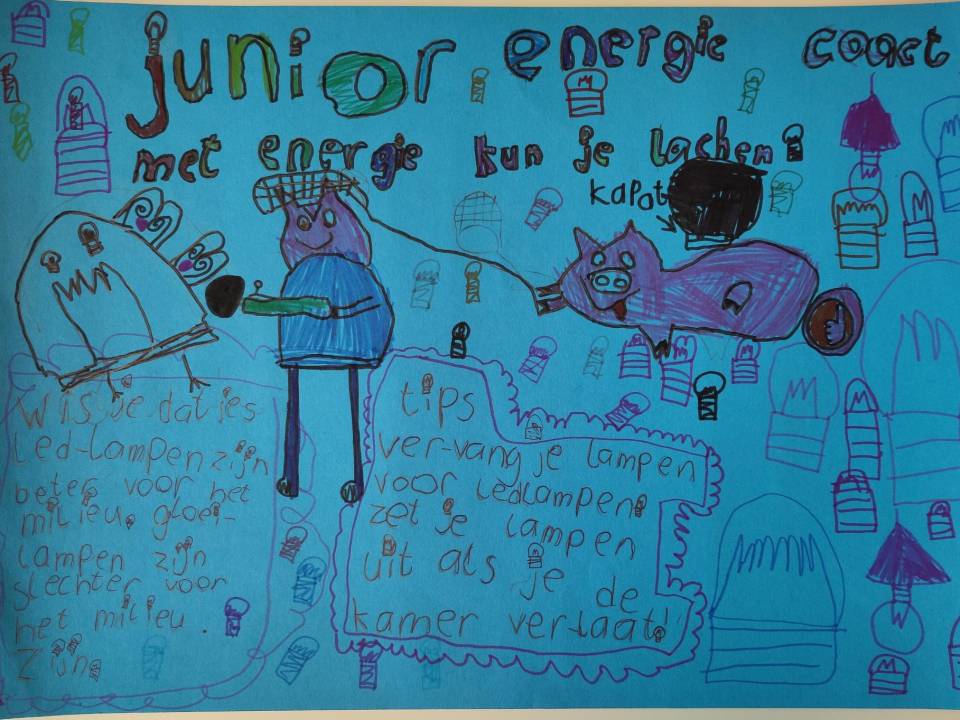 junior energie coact
met energie kun je lachen!
kapot
Wis je dat jes
Led-lampen zijn
beter voor het
milieu. gloei-
lampen zijn
slechter voor
het milieu.
zijn.
tips
ver-vang je lampen
voor ledlampen!
zet je lampen
uit als je de
kamer verlaat!